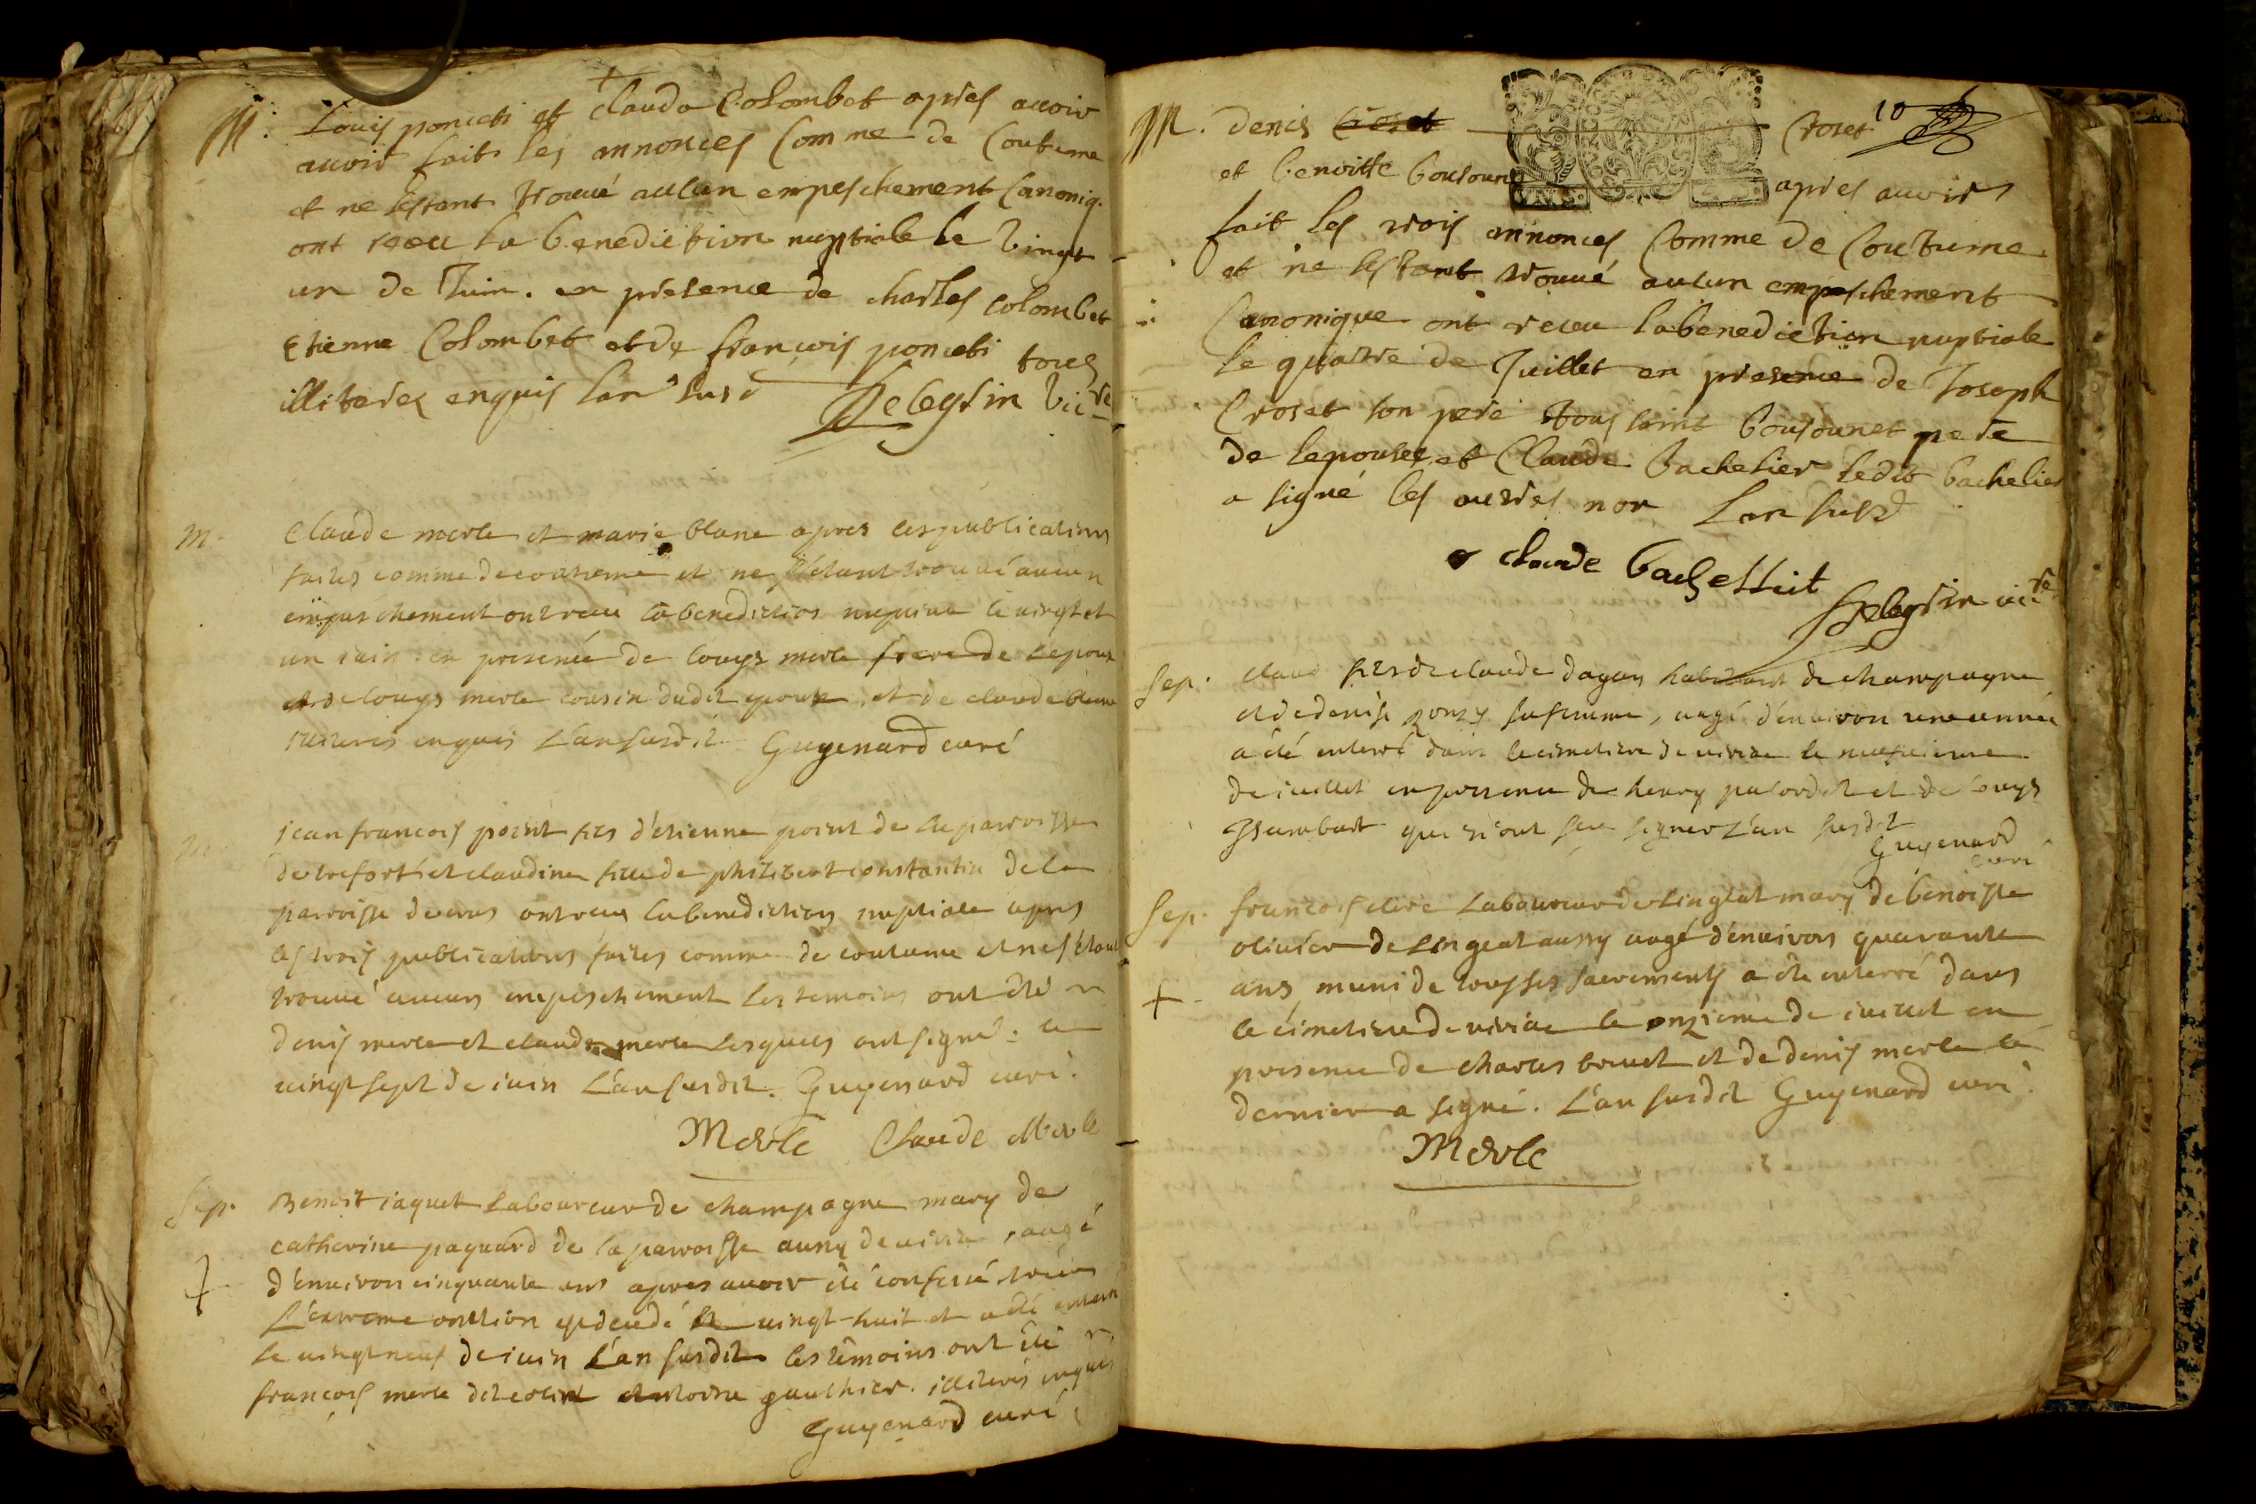 M. Louis ponceti et claude Colombet apres avoir
avoir fait les annonces Comme de Coutume
et ne sestant trouué aulcun empeschement Canoniq.
ont receu la benediction nuptiale le vingt
un de Juin. en presence de charles colombet
Etienne Colombet et de françois ponceti tous
illiteres enquis lan susd Pelegrin vicre
m. Claude merle et marie blanc apres les publications
faites comme de coutume et ne s'étant trouué aucun
empeschement ont receu la benediction nuptiale le vingt et
un iuin. en presence de louys merle frere de l'epoux
et de louys merle cousin dudit epoux, et de claude blanc
enquis l'an susdit Guyenard curé
jean francois point fils d'etienne point de la parroisse
de trefort et claudine fille de philibert constantin de la
parroisse de ont receu la benediction nuptiale apres
les trois publications faites comme de coutume et ne s'étant
trouué aucun empeschement les temoins ont été
denis merle et claude merle lesquels ont signé. le
vingt sept de iuin l'an susdit. Guyenard curé.
Merle Claude Merle
Sep. Benoit iaquet Laboureur de champagne mary de
catherine paquard de la parroisse aussy de , aagé
d'enuiron cinquante ans apres auoir été confessé et receu
l'extreme onction est decedé le vingt-huit et a été enterré
le vingt neuf de iuin l'an susdit les temoins ont été
francois merle dit colin et antoine gauthier. illiterés enquis
Guyenard curé
10
M. denis Croset Croset
et benoitte bousounet apres avoir
fait les trois annonces Comme de Coutume
et ne sestant trouué aulcun empeschement
Canonique ont receu la benediction nuptiale
le quattre de Juillet en presence de Joseph
Croset son pere toussaint bousounet pere
de lepousee et Claude bachelier ledit bachelier
a signé les autres non Lan susd
claude bachelliet
Pelegrin vicre
Sep. claud fils de claude dagan habitant de champagne
et de denise sa femme, aagé d'enuiron une année
a été enterré dans le cimetiere de le neufuieme
de iuillet en presence de henry et de louys
Isambart qui n'ont sceu signer l'an susdit
Guyenard
curé
Sep. francois clere Laboureur de Lingeat mary de benoiste
oliuier de Lingeat aussy aagé d'enuiron quarante
ans muni de tous ses sacrements a été enterré dans
le cimetiere de le onzieme de iuillet en
presence de charles et de denis merle le
dernier a signé. l'an susdit Guyenard curé.
Merle